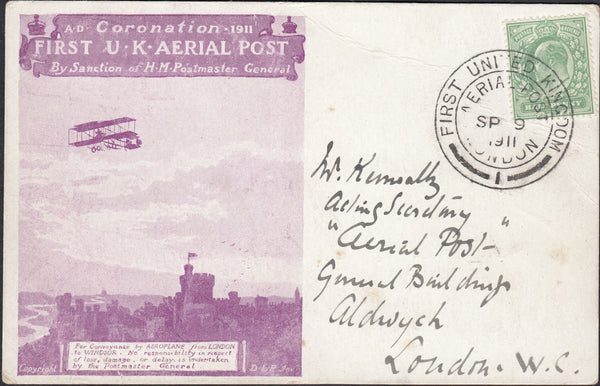 A·D· Coronation ·1911
FIRST ·U·K· AERIAL POST
By Sanction of H·M·Postmaster General
FIRST UNITED KINGDOM
AERIAL POST
SP 9
1911
LONDON
1
Mr.
Acting Secretary
"Aerial Post"
General Buildings
Aldwych
London. W.C.
For Conveyance by AEROPLANE from LONDON
to WINDSOR. No responsibility in respect
of loss, damage, or delay, is undertaken
by the Postmaster General
Copyright